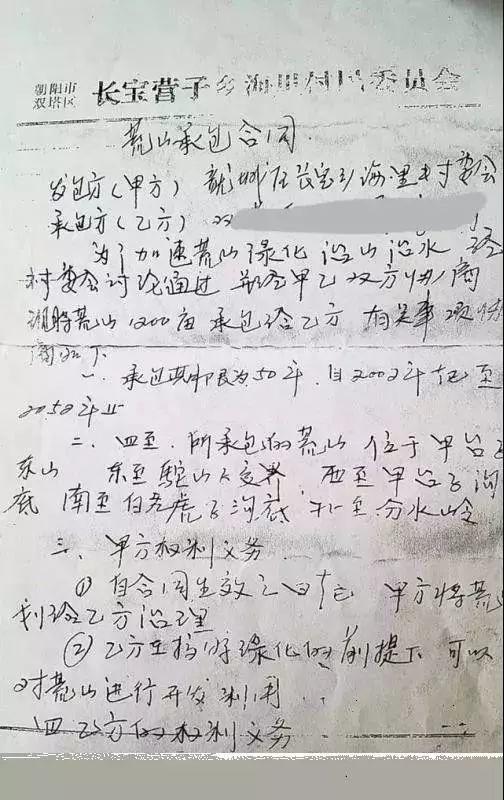 朝阳市
双塔区 长宝营子乡海里村村民委员会
荒山承包合同
发包方(甲方) 龙城区长宝乡海里村村委会
承包方(乙方) 双
为了加速荒山绿化 治山治水 经
村委会讨论通过 并经甲乙双方协商
现将荒山1200亩承包给乙方 有关事项协
商如下
一、承包期限为50年.自2002年起至
2052年止
二、四至.所承包的荒山 位于甲台子
东山 东至 山 交界 西至甲台子沟
底 南至白老虎子沟底 北至分水岭
三、甲方权利义务
① 自合同生效之日起 甲方将荒山
划给乙方治理
② 乙方在搞好绿化的前提下 可以
对荒山进行开发利用
四 乙方的权利义务